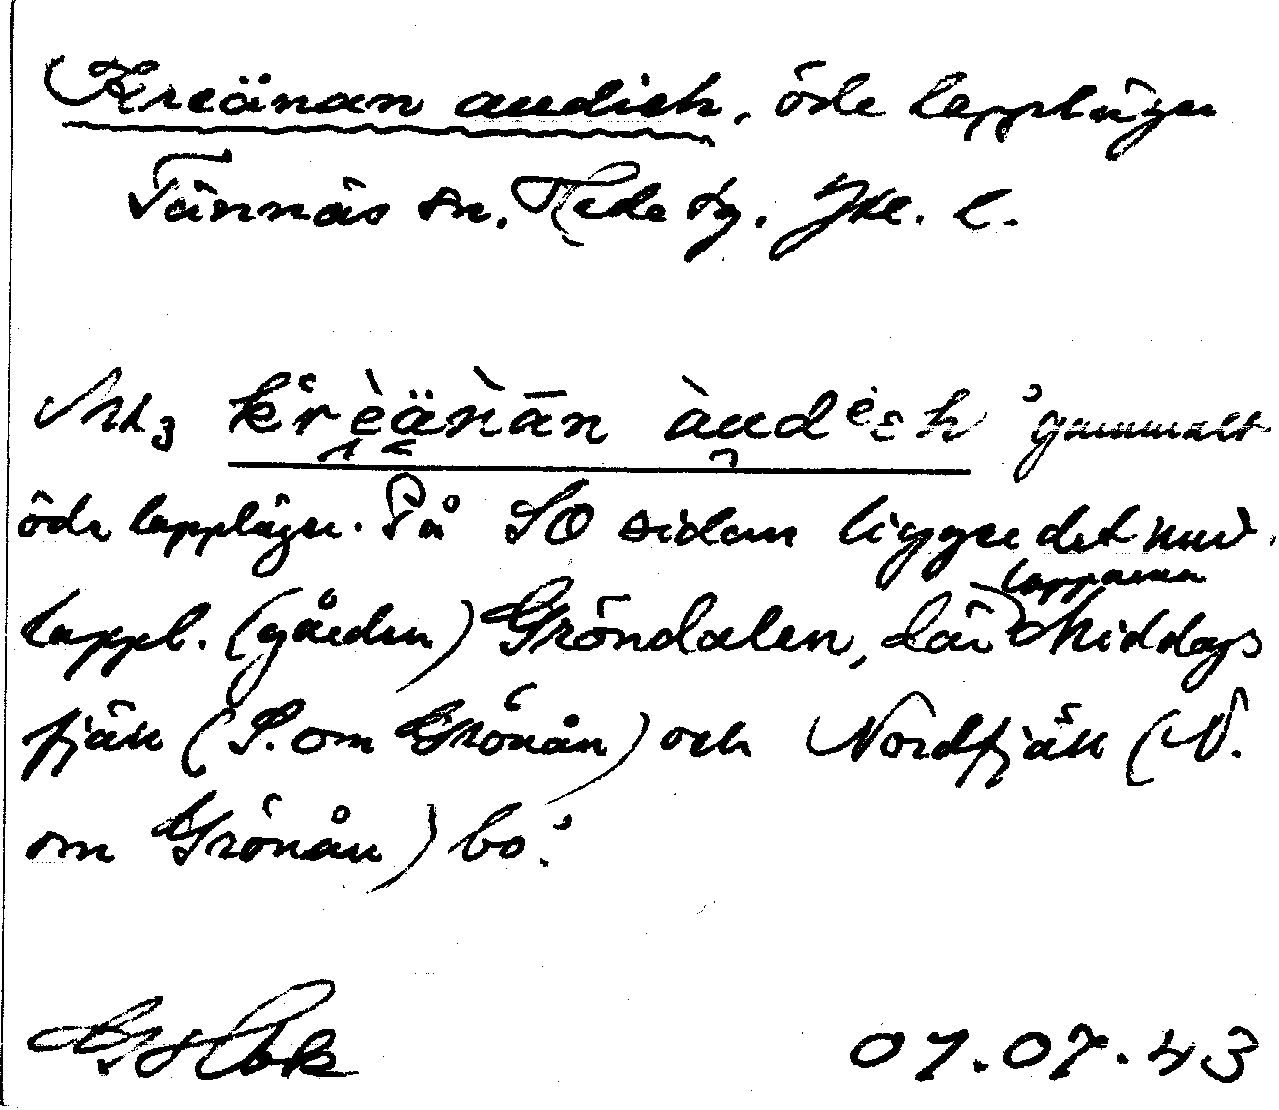 Kreänan audieh, öde lappläger
Tännäs sn. Hede tg. Jtl. l.
kreänān àudeh 'gammalt
öde lappläger. På SO sidan ligger det nuv.
lappl. (gården) Gröndalen, där lapparna i Middags
fjäll (S. om Grönån) och Nordfjäll (N.
om Grönån) bo.'
07.07.43